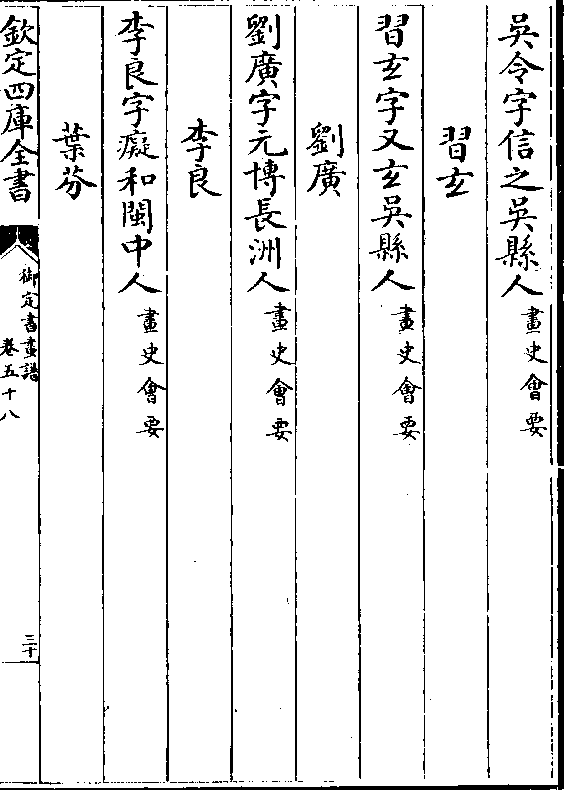 吳令字信之吳縣人畫史會要
習玄
習玄字又玄吳縣人畫史會要
劉廣
劉廣字元博長洲人畫史會要
李良
李良字癡和閩中人畫史會要
葉芬
欽定四庫全書
御定書畫譜
卷五十八
三十